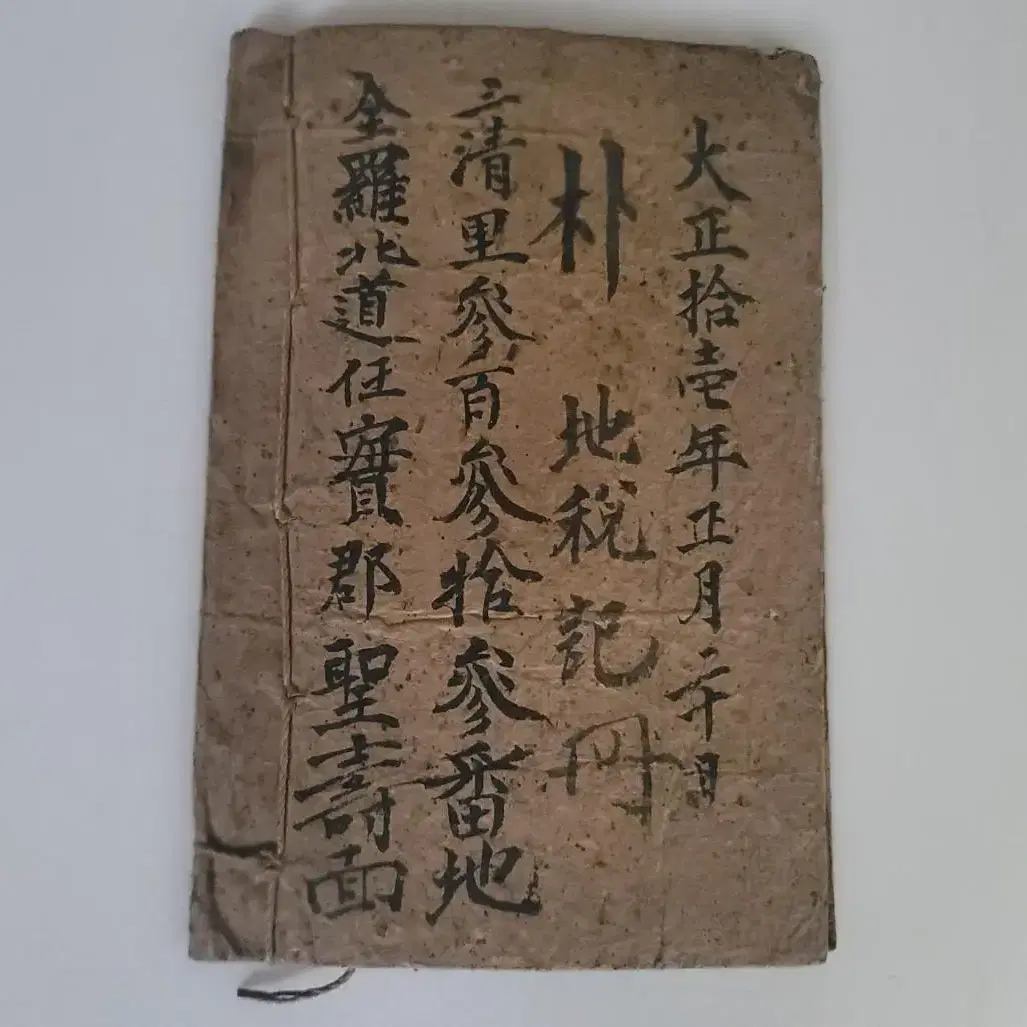 大正拾壱年正月二十日
朴 地稅記冊
三清里參百參拾參番地
全羅北道任實郡聖壽面